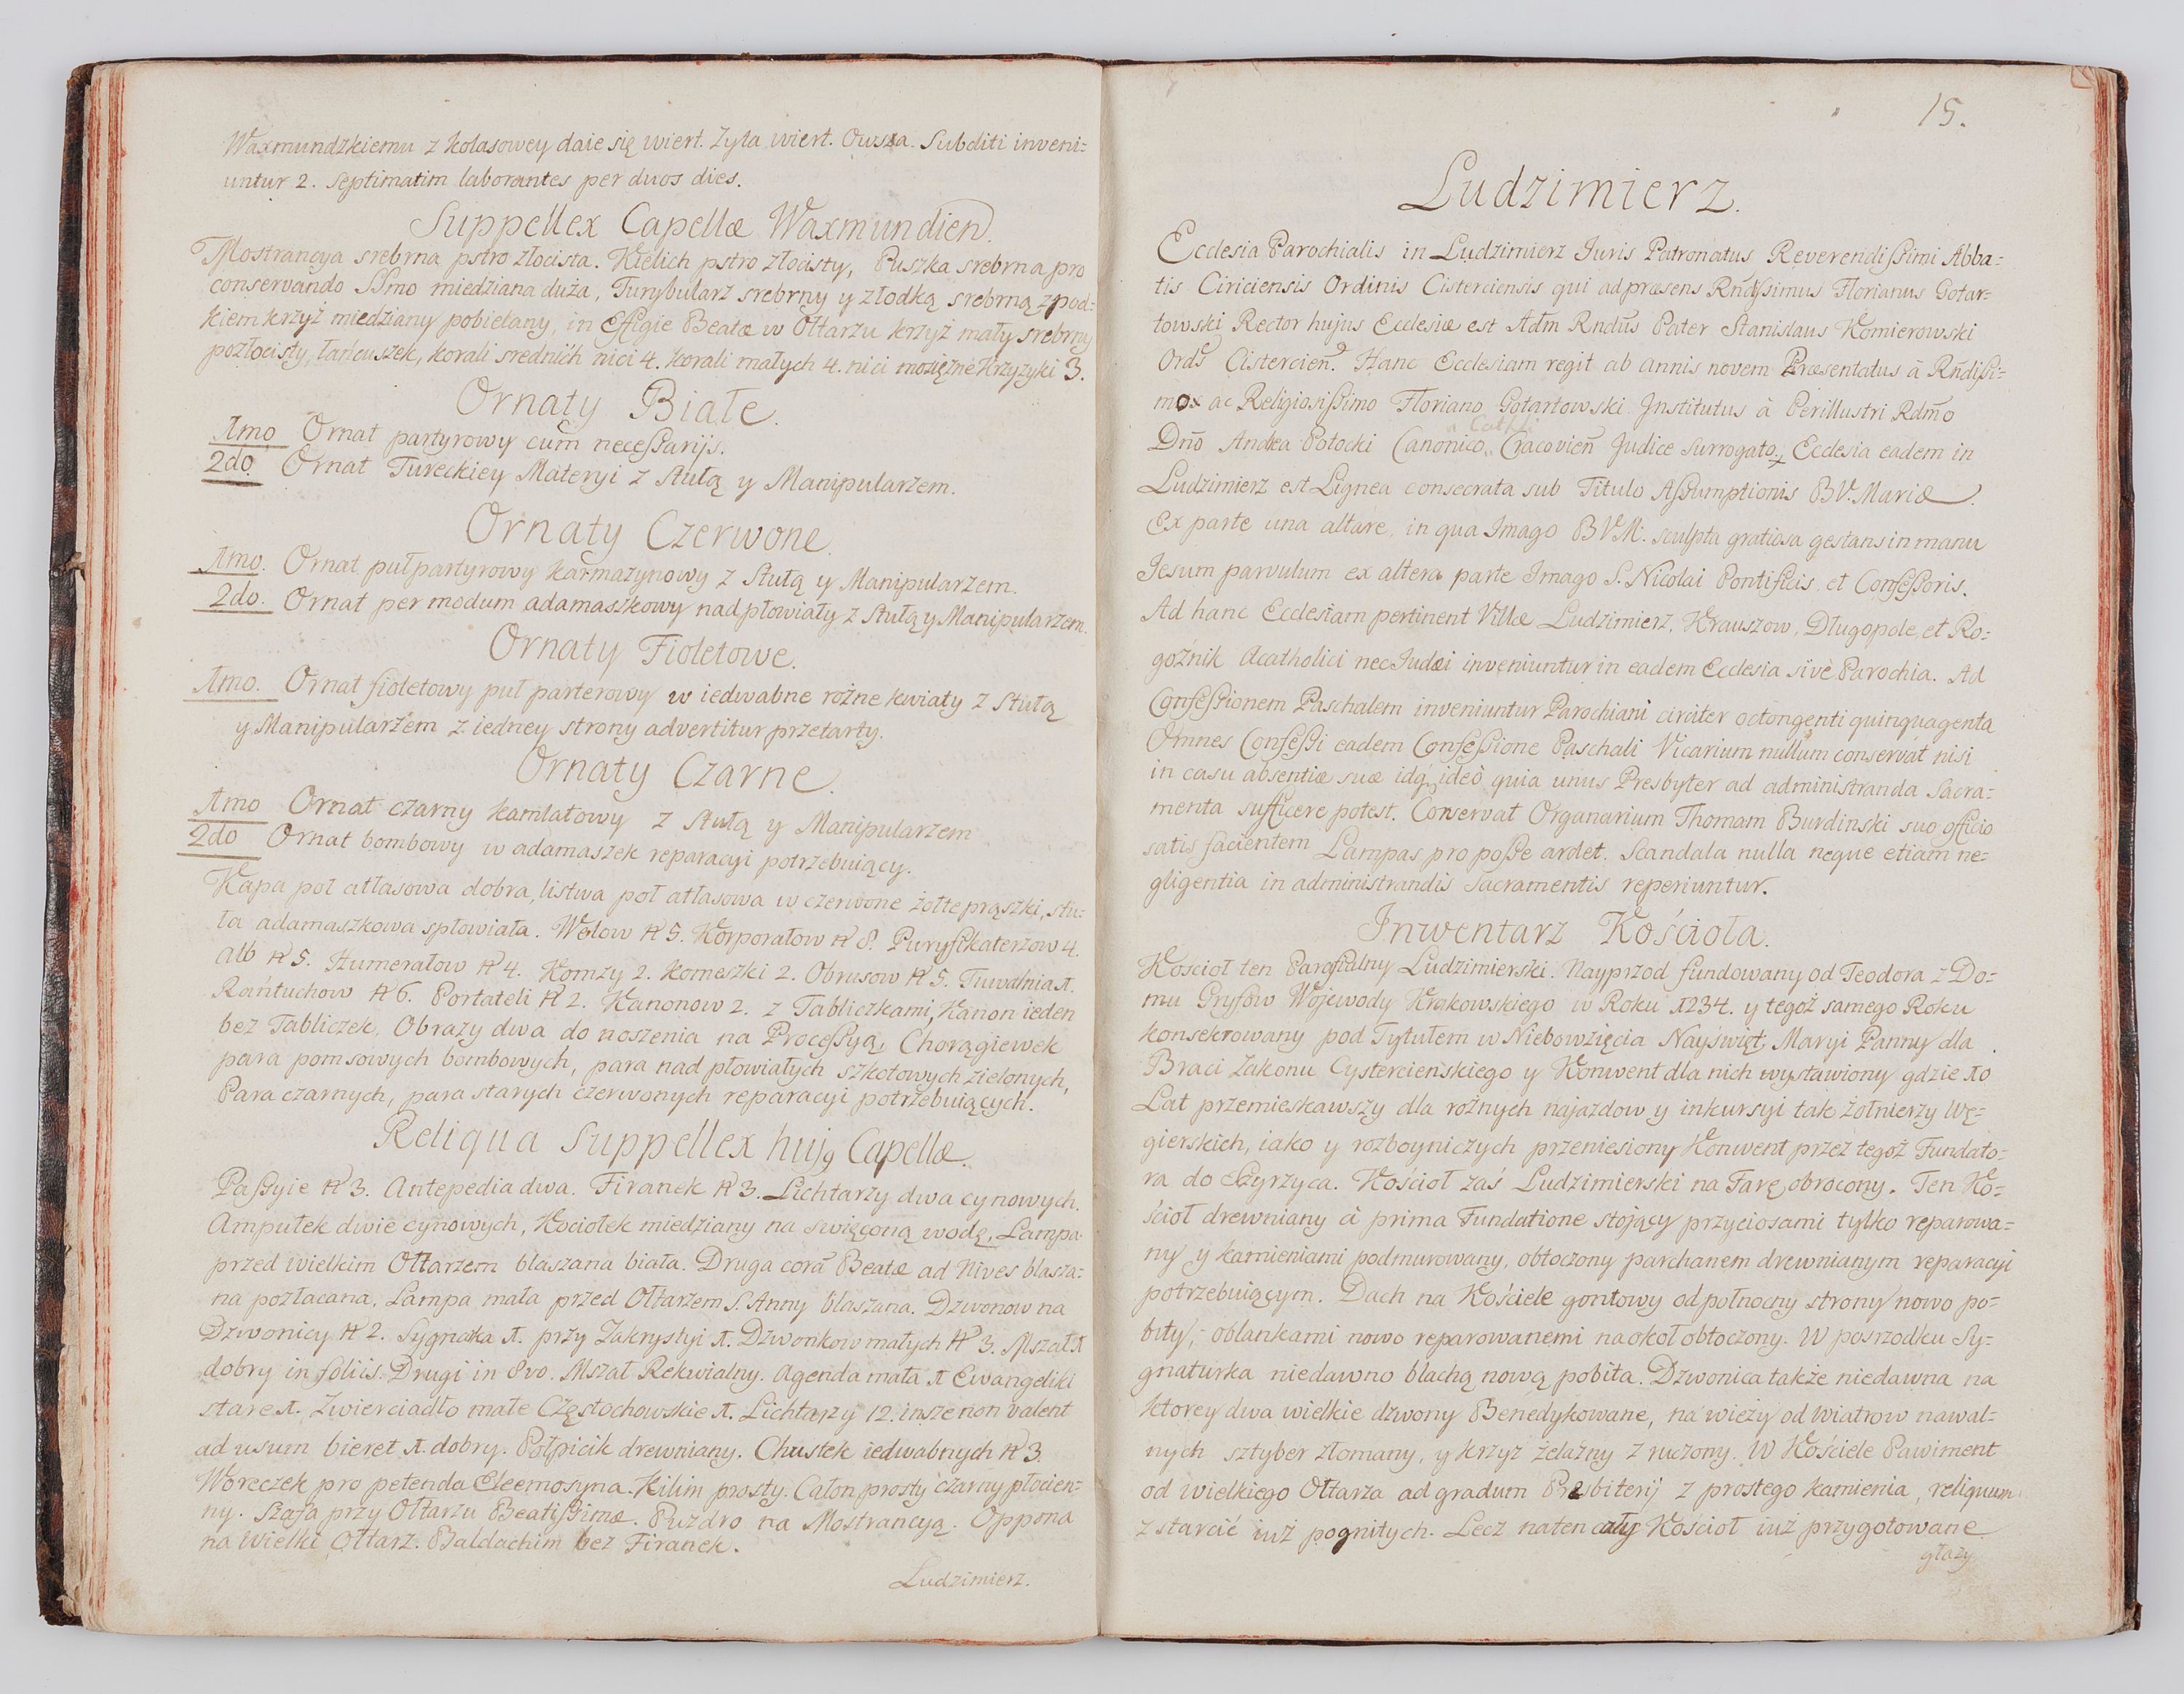 Waxmundzkiemu z kolasowey daie się wiert. Zyta wiert. Owsa. Subditi inveni=
untur 2. Septimatim laborantes per duos dies.
Suppellex Capellæ Waxmundien.
Mostrancya srebrna pstro złocista. Kielich pstro złocisty, Puszka srebrna pro
conservando SSmo miedziana duża, Turybularz srebrny y złodką srebrną zpod=
kiem krzyż miedziany pobielany, in Effigie Beatæ w Ołtarzu krzyż mały srebrny
pozłocisty, łańcuszek, korali srednich nici 4. korali małych 4. nici mosiężne Krzyzyki 3.
Ornaty Białe.
1mo Ornat partyrowy cum necessarijs.
2do. Ornat Tureckiey Materyi z Stułą y Manipularzem.
Ornaty Czerwone.
1mo. Ornat pułpartyrowy karmazynowy z Stułą y Manipularzem.
2do. Ornat per modum adamaszkowy nadpłowiały z Stułą y Manipularzem.
Ornaty Fioletowe.
1mo. Ornat fioletowy puł parterowy w iedwabne rożne kwiaty z Stułą
y Manipularzem z iedney strony advertitur przetarty.
Ornaty Czarne.
1mo Ornat czarny kamlatowy z Stułą y Manipularzem
2do Ornat bombowy w adamaszek reparacyi potrzebuiący.
Kapa poł atłasowa dobra, listwa poł atłasowa w czerwone żołte prąszki, stu=
ła adamaszkowa spłowiała. Welow N 5. Korporałow N 8. Puryfikaterzow 4.
Alb N 5. Humerałow N 4. Komży 2. Komeszki 2. Obrusow N 5. Tuwalnia 1.
Rańtuchow N 6. Portateli N 2. Kanonow 2. z Tabliczkami, Kanon ieden
bez Tabliczek. Obrazy dwa do noszenia na Processyą, Chorągiewek
para pomsowych bombowych, para nad płowiałych szkotowych zielonych,
Para czarnych, para starych czerwonych reparacyi potrzebuiących.
Reliqua Suppellex hujq Capellæ.
Passyie N 3. Antepedia dwa. Firanek N 3. Lichtarzy dwa cynowych.
Ampułek dwie cynowych, Kociołek miedziany na swięconą wodę, Lampa
przed wielkim Ołtarzem blaszana biała. Druga corã Beatæ ad Nives blasza=
na pozłacana, Lampa mała przed Ołtarzem S. Anny blaszana. Dzwonow na
Dzwonicy N 2. Sygnatka 1. przy Zakrystyi 1. Dzwonkow małych N 3. Mszał 1
dobry in foliis. Drugi in 8vo. Mszał Rekwialny. Agenda mała 1 Ewangeliki
stare 1. Zwierciadło małe Częstochowskie 1. Lichtarzy 12. insze non valent
ad usum bieret 1. dobry. Połpicik drewniany. Chustek iedwabnych N 3.
Woreczek pro petenda Eleemosyna. Kilim prosty. Całon prosty czarny płocien=
ny. Szafa przy Ołtarzu Beatissimæ. Puzdro na Mostrancyą. Oppona
na Wielki Ołtarz. Baldachim bez Firanek.
Ludzimierz.
15.
Ludzimierz.
Ecclesia Parochialis in Ludzimierz Juris Patronatus Reverendissimi Abba=
tis Ciriciensis Ordinis Cisterciensis qui ad præsens Rndssimus Florianus Gotar=
towski Rector hujus Ecclesiæ est Adm Rndus Pater Stanislaus Komierowski
Ords Cistercien. Hanc Ecclesiam regit ab annis novem Præsentatus à Rndissi=
mo ac Religiosissimo Floriano Gotartowski Institutus à Perillustri Rdmo
Dño Andrea Potocki Canonico Cath: Cracovien Judice Surrogato, Ecclesia eadem in
Ludzimierz est Lignea consecrata sub Titulo Assumptionis B V. Mariæ.
Ex parte una altare, in qua Imago B V M. sculpta gratiosa gestans in manu
Jesum parvulum ex altera parte Imago S. Nicolai Pontificis et Confessoris.
Ad hanc Ecclesiam pertinent Villæ Ludzimierz, Krauszow, Długopole, et Ro=
goźnik Acatholici nec Judæi inveniuntur in eadem Ecclesia sive Parochia. Ad
Confessionem Paschalem inveniuntur Parochiani circiter octongenti quinquagenta
Omnes Confessi eadem Confessione Paschali Vicarium nullum conservat nisi
in casu absentiæ suæ idq ideò quia unus Presbyter ad administranda Sacra=
menta sufficere potest. Conservat Organarium Thomam Burdinski suo officio
satis facientem Lampas pro posse ardet. Scandala nulla neque etiam ne=
gligentia in administrandis Sacramentis reperiuntur.
Inwentarz Kościoła.
Kościoł ten Parafialny Ludzimierski. Nayprzod fundowany od Teodora z Do=
mu Gryfow Wojewody Krakowskiego w Roku 1234. y tegoż samego Roku
konsekrowany pod Tytułem w Niebowzięcia Nayświęt. Maryi Panny dla
Braci Zakonu Cystercieńskiego y Konwent dla nich wystawiony gdzie 10
Lat przemieskawszy dla rożnych najazdow y inkursyi tak żołnierzy Wę=
gierskich, iako y rozboyniczych przeniesiony Konwent przez tegoż Fundato=
ra do Szyrzyca. Kościoł zaś Ludzimierski na Farę obrocony. Ten Ko=
ścioł drewniany à prima Fundatione stojący przyciosami tylko reparowa=
ny y kamieniami podmurowany, obtoczony parchanem drewnianym reparacyi
potrzebuiącym. Dach na Kościele gontowy od połnocny strony nowo po=
bity, oblankami nowo reparowanemi naokoł obtoczony. W posrzodku Sy=
gnaturka niedawno blachą nową pobita. Dzwonica także niedawna na
ktorey dwa wielkie dzwony Benedykowane, na wieży od wiatrow nawal=
nych sztyber złomany, y krzyz żelazny zruczony. W Kościele Pawiment
od wielkiego Ołtarza ad gradum Presbiterij z prostego kamienia, reliquum
z starcić iuż pognitych. Lecz na ten cały Kościoł iuż przygotowane
głazy